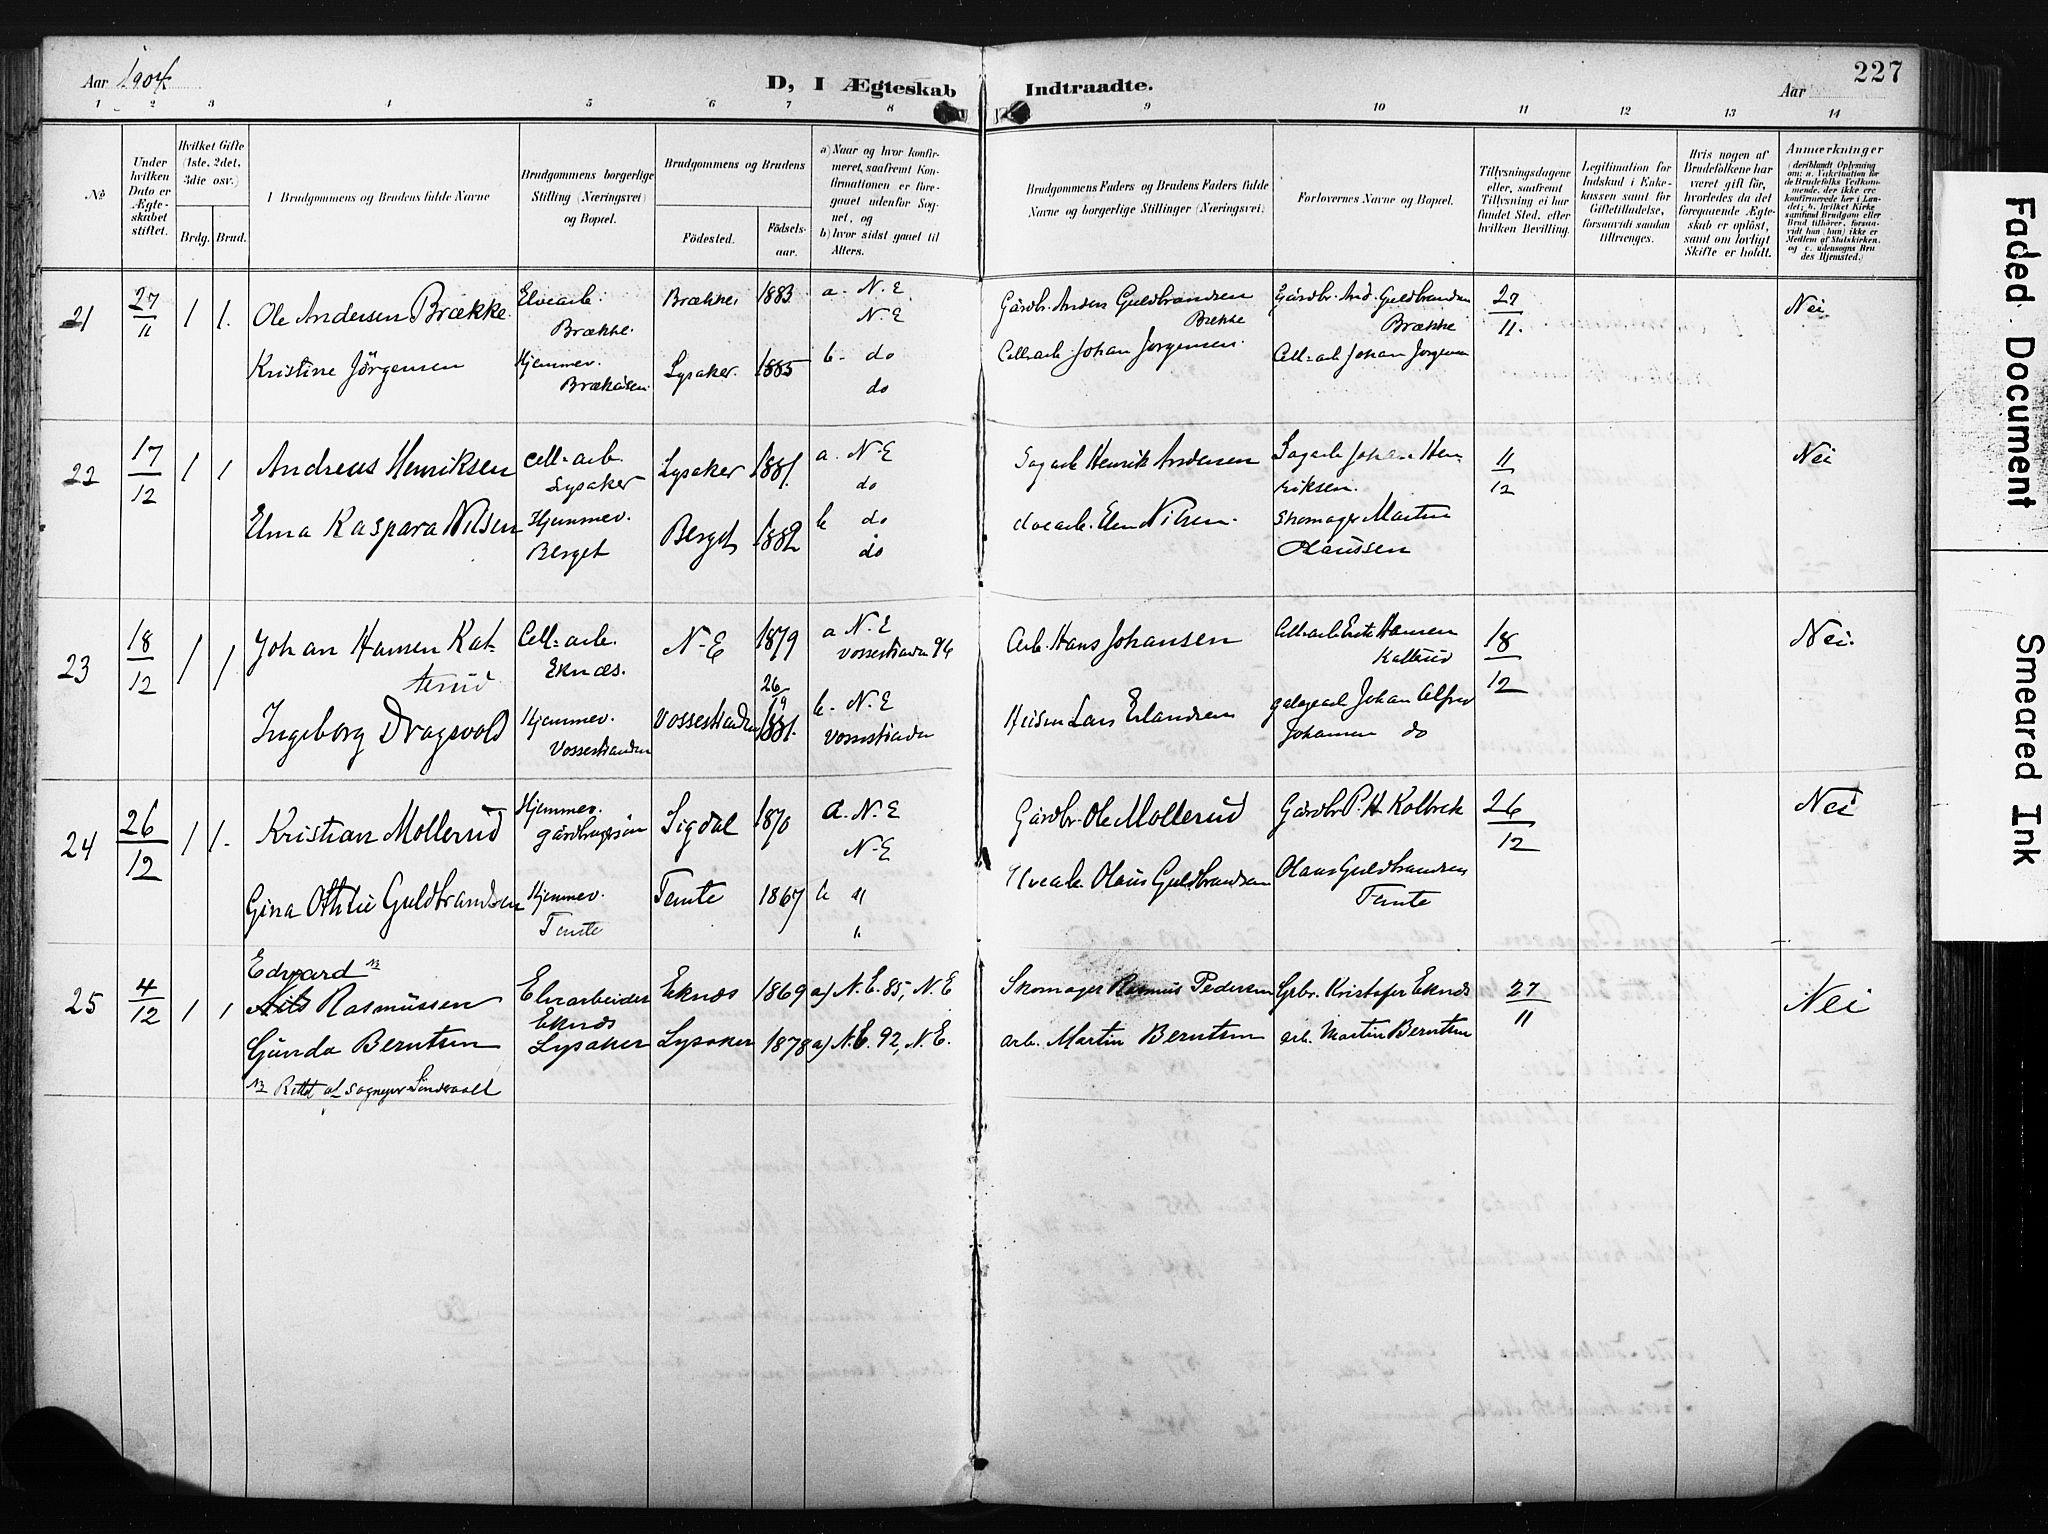 Aar 1904
D, I Ægteskab Indtraadte.
227
Aar
1 2 3 4 5 6 7 8 9 10 11 12 13 14
No
Under hvilken Dato er Ægteskabet stiftet.
Hvilket Gifte (1ste, 2det, 3die osv.)
Brdg. Brud.
Brudgommens og Brudens fulde Navne
Brudgommens borgerlige Stilling (Næringsvei) og Bopæl.
Brudgommens og Brudens
Fødested.
Fødselsaar.
a) Naar og hvor konfirmeret, saafremt Konfirmationen er foregaaet udenfor Sognet, og
b) hvor sidst gaaet til Alters.
Brudgommens Faders og Brudens Faders fulde Navne og borgerlige Stillinger (Næringsvei)
Forlovernes Navne og Bopæl.
Tillysningsdagene eller, saafremt Tillysning ei har fundet Sted, efter hvilken Bevilling.
Legitimation for Indskud i Enkekassen samt for Giftetilladelse, forsaavidt saadan tiltrænges.
Hvis nogen af Brudefolkene har været gift før, hvorledes da det foregaaende Ægteskab er opløst, samt om lovligt Skifte er holdt.
Anmærkninger
21 27/11 1 1. Ole Andersen Brække. Elvearb. Brække. Brække. 1883 a. N. E N. E Gårdbr. Anders Guldbrandsen Brekke Gårdbr. And. Guldbrandsen Brække 27/11. Nei
Kristine Jörgensen Hjemmev. Lysaker. 1885 b. do do Cell.arb Johan Jørgensen. Cell.arb Johan Jørgensen
22 17/12 1 1 Andreas Henriksen Cell.arb. Lysaker Lysaker 1881. a. N-E do Sagarb Henrik Andersen Sagarb Johan Henriksen. 11/12 Nei
Elma Kaspara Nilsen Hjemmev. Berget Berget 1882 b do do Nilsen. Skomager Martin Olaussen
23 18/12 1 1 Johan Hansen Katterud Cell.arb. Eknæs. N-E 1879 a N. E Vossestranden 96 Arb. Hans Johansen Cell.arb Hansen Katterud 18/12 Nei.
Ingeborg Dragsvold Hjemmev. Vossestranden Vossestranden 26/9 1881. b. N. E Vossestranden Lars Erlandsen Johan Alfred Johansen do
24 26/12 1 1. Kristian Mollerud Hjemmev. gårdbrugersøn Sigdal 1870 a. N. E N-E Gårdbr. Ole Mollerud Gårdbr. P. H Kolbrek 26/12 Nei
Gina Othilie Guldbrandsen Hjemmev. Temte Temte 1867 b " " Elvearb. Olaus Guldbrandsen Olaus Guldbrandsen Temte
Edvard NB
25 4/12 1 1 Nils Rasmüssen Elvearbeider Eknæs Eknæs 1869 a) N. E. 85, N. E Skomager Rasmus Pedersen Gbr. Kristofer Eknæs 27/11 Nei
Gunda Berntsen Lysaker Lysaker 1878 a) N. E. 92, N. E. arb. Martin Berntsen arb. Martin Berntsen
NB Rettet af sognepr
Faded Document
Smeared Ink